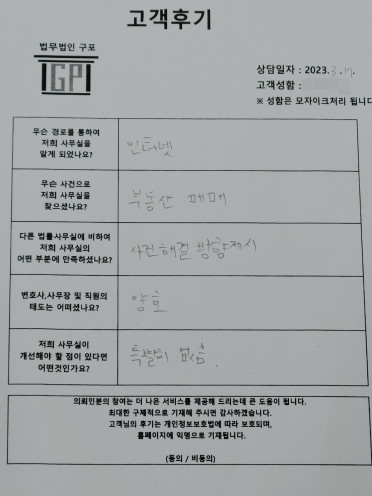 고객후기
법무법인 구포
GP
상담일자 : 2023.3.17.
고객성함 :
※ 성함은 모자이크처리 됩니다
무슨 경로를 통하여
저희 사무실을
알게 되었나요?
인터넷
무슨 사건으로
저희 사무실을
찾으셨나요?
부동산 매매
다른 법률사무실에 비하여
저희 사무실의
어떤 부분에 만족하셨나요?
사건해결 방향제시
변호사,사무장 및 직원의
태도는 어떠셨나요?
양호
저희 사무실이
개선해야 할 점이 있다면
어떤것인가요?
특별히 없음.
의뢰인분의 참여는 더 나은 서비스를 제공해 드리는데 큰 도움이 됩니다.
최대한 구체적으로 기재해 주시면 감사하겠습니다.
고객님의 후기는 개인정보보호법에 따라 보호되며,
홈페이지에 익명으로 기재됩니다.
(동의 / 비동의)